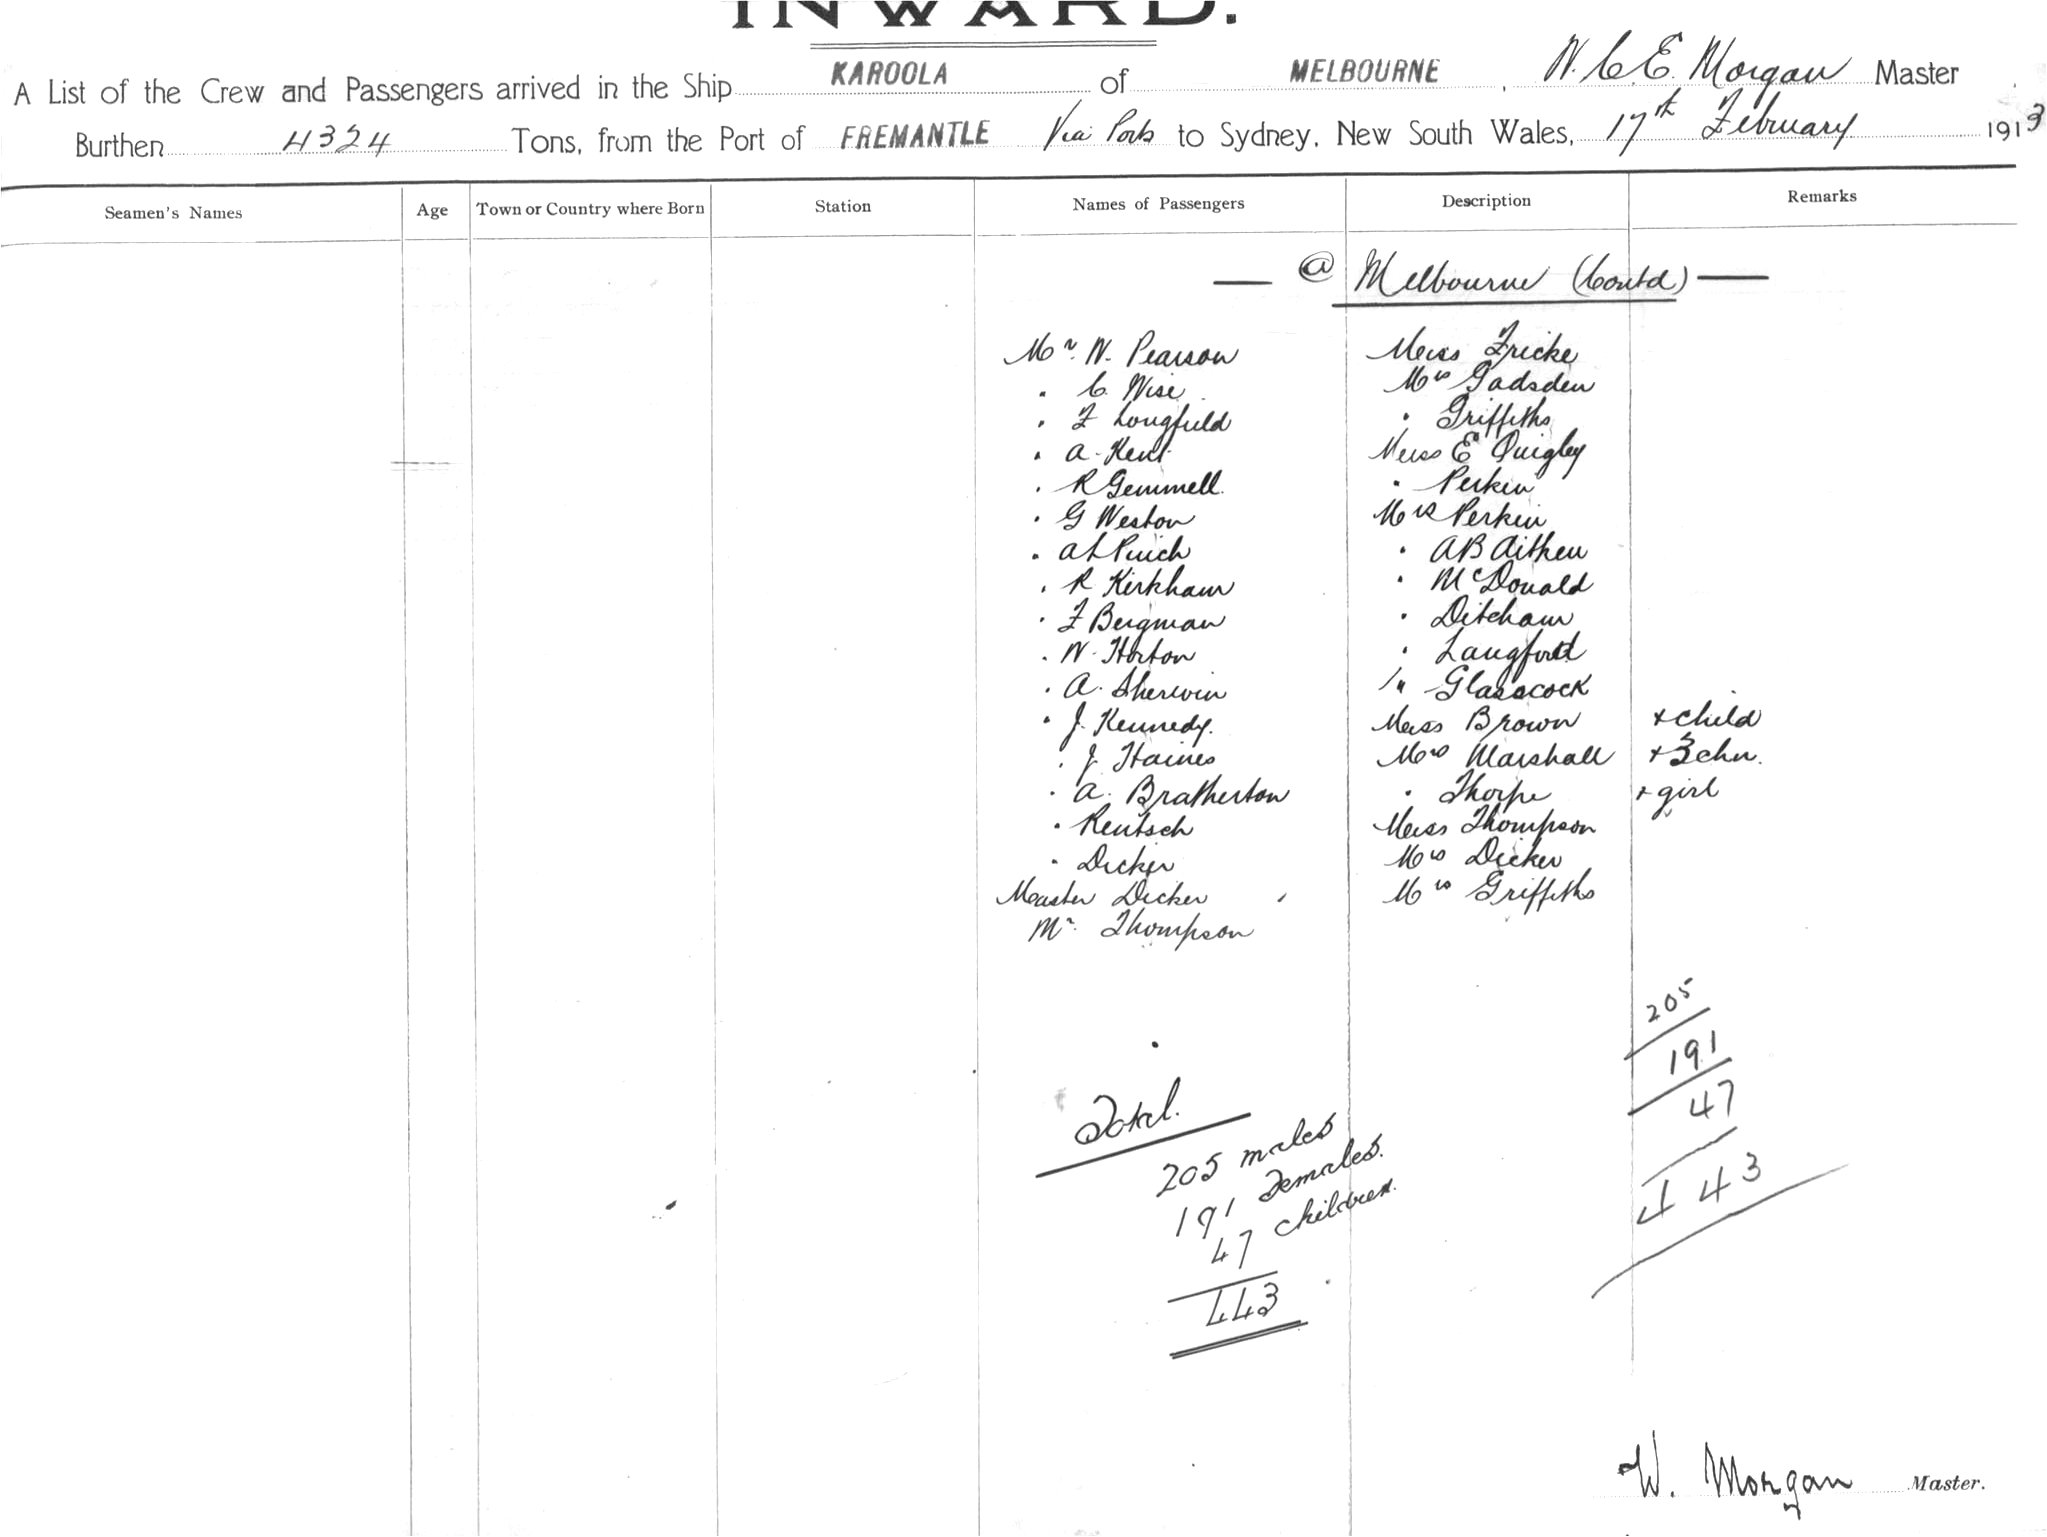 INWARD.
A List of the Crew and Passengers arrived in the Ship KAROOLA of MELBOURNE, W. C. E. Morgan Master
Burthen 4324 Tons, from the Port of FREMANTLE Via Ports to Sydney, New South Wales, 17th February 1913
Seamen's Names Age Town or Country where Born Station Names of Passengers Description Remarks
— @ Melbourne (Contd) —
Mr. W. Pearson Miss Fricke
" C. Wise Mrs Gadsden
" F Longfield " Griffiths
" A. Kent Miss E Quigley
" R Gemmell " Perkin
" G Weston Mrs Perkin
" A L Punch " A B Aitken
" R Kirkham " McDonald
" F Bergman " Ditcham
" W. Horton " Langford
" A. Sherwin " Glasscock
" J. Kennedy. Miss Brown + child
" J Haines Mrs Marshall + 3 chn.
" A. Bratherton " Thorpe + girl
" Rentsch Miss Thompson
" Dicker Mrs Dicker
Master Dicker Mrs Griffiths
Mr. Thompson
205
191
47
443
Total.
205 males
191 Females.
47 children.
443
W. Morgan Master.